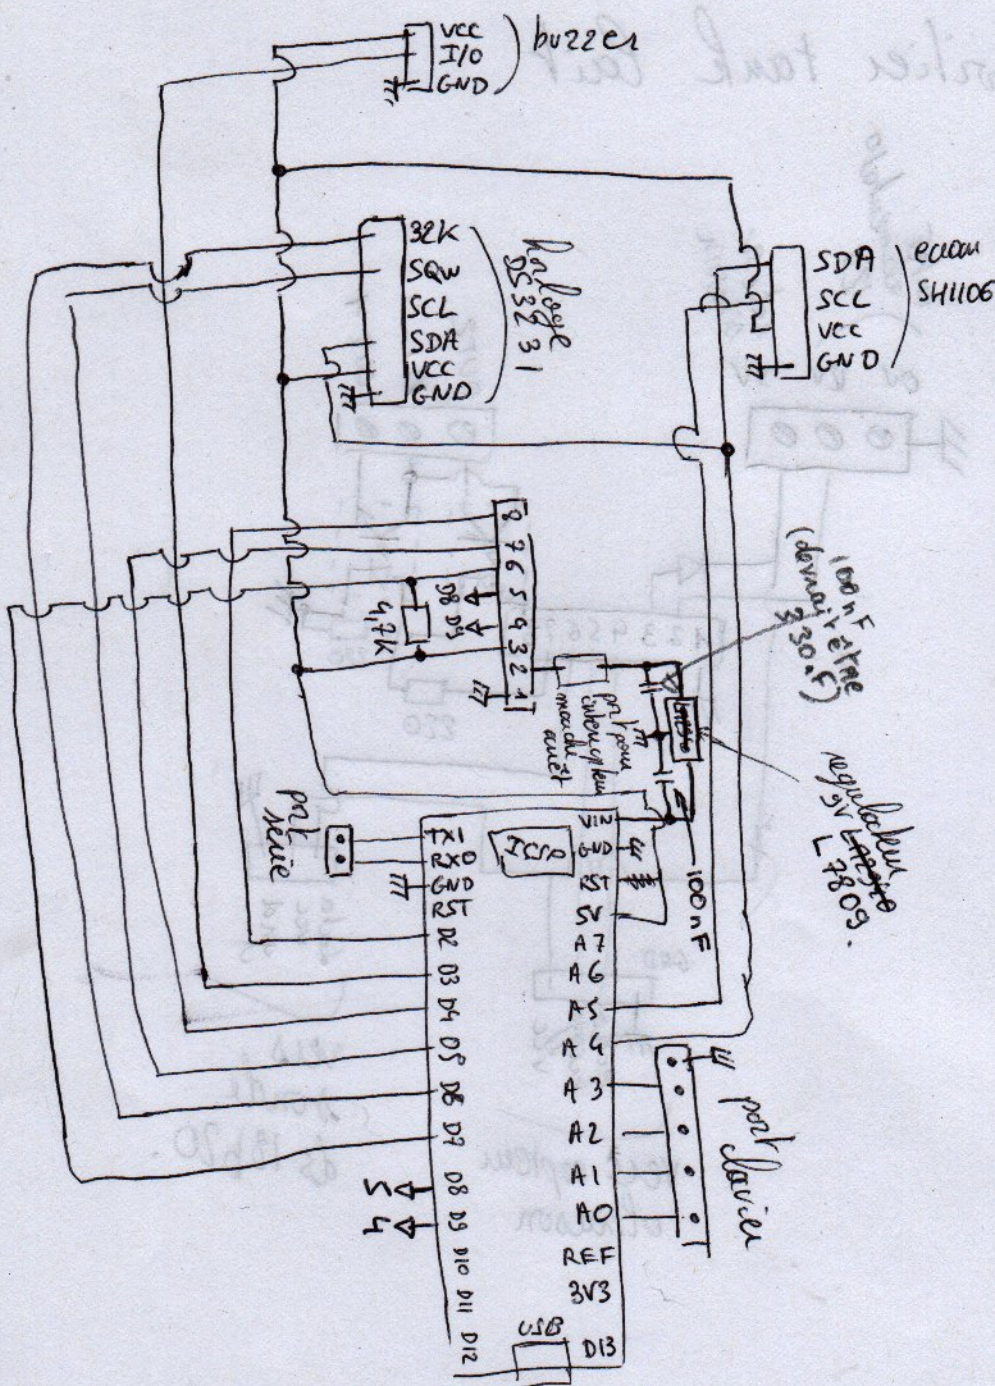 VCC
I/O
GND
buzzer
32K
SQW
SCL
SDA
VCC
GND
horloge
DS3231
SDA
SCL
VCC
GND
ecran
SH1106
8
7
6
5
4
3
2
1
D8
D9
4,7K
port pour
interrupteur
marche
arrêt
100nF
(devrait être
330nF)
regulateur
9V
L7809.
100nF
port
série
TX1
RX0
GND
RST
D2
D3
D4
D5
D6
D7
D8
D9
D10
D11
D12
5
4
ICSP
VIN
GND
RST
5V
A7
A6
A5
A4
A3
A2
A1
A0
REF
3V3
D13
USB
port
clavier